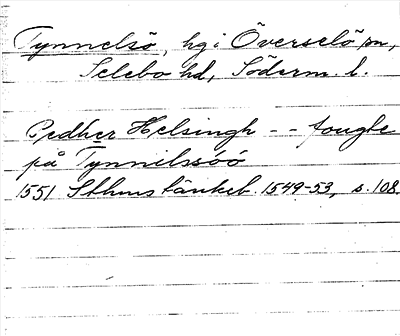 Tynnelsö, hg i Överselö sn,
Selebo hd, Söderm. l.
Pedher Helsingh - - fougte
på Tynnilssöö
1551 Sthms tänkeb. 1549-53, s. 108.